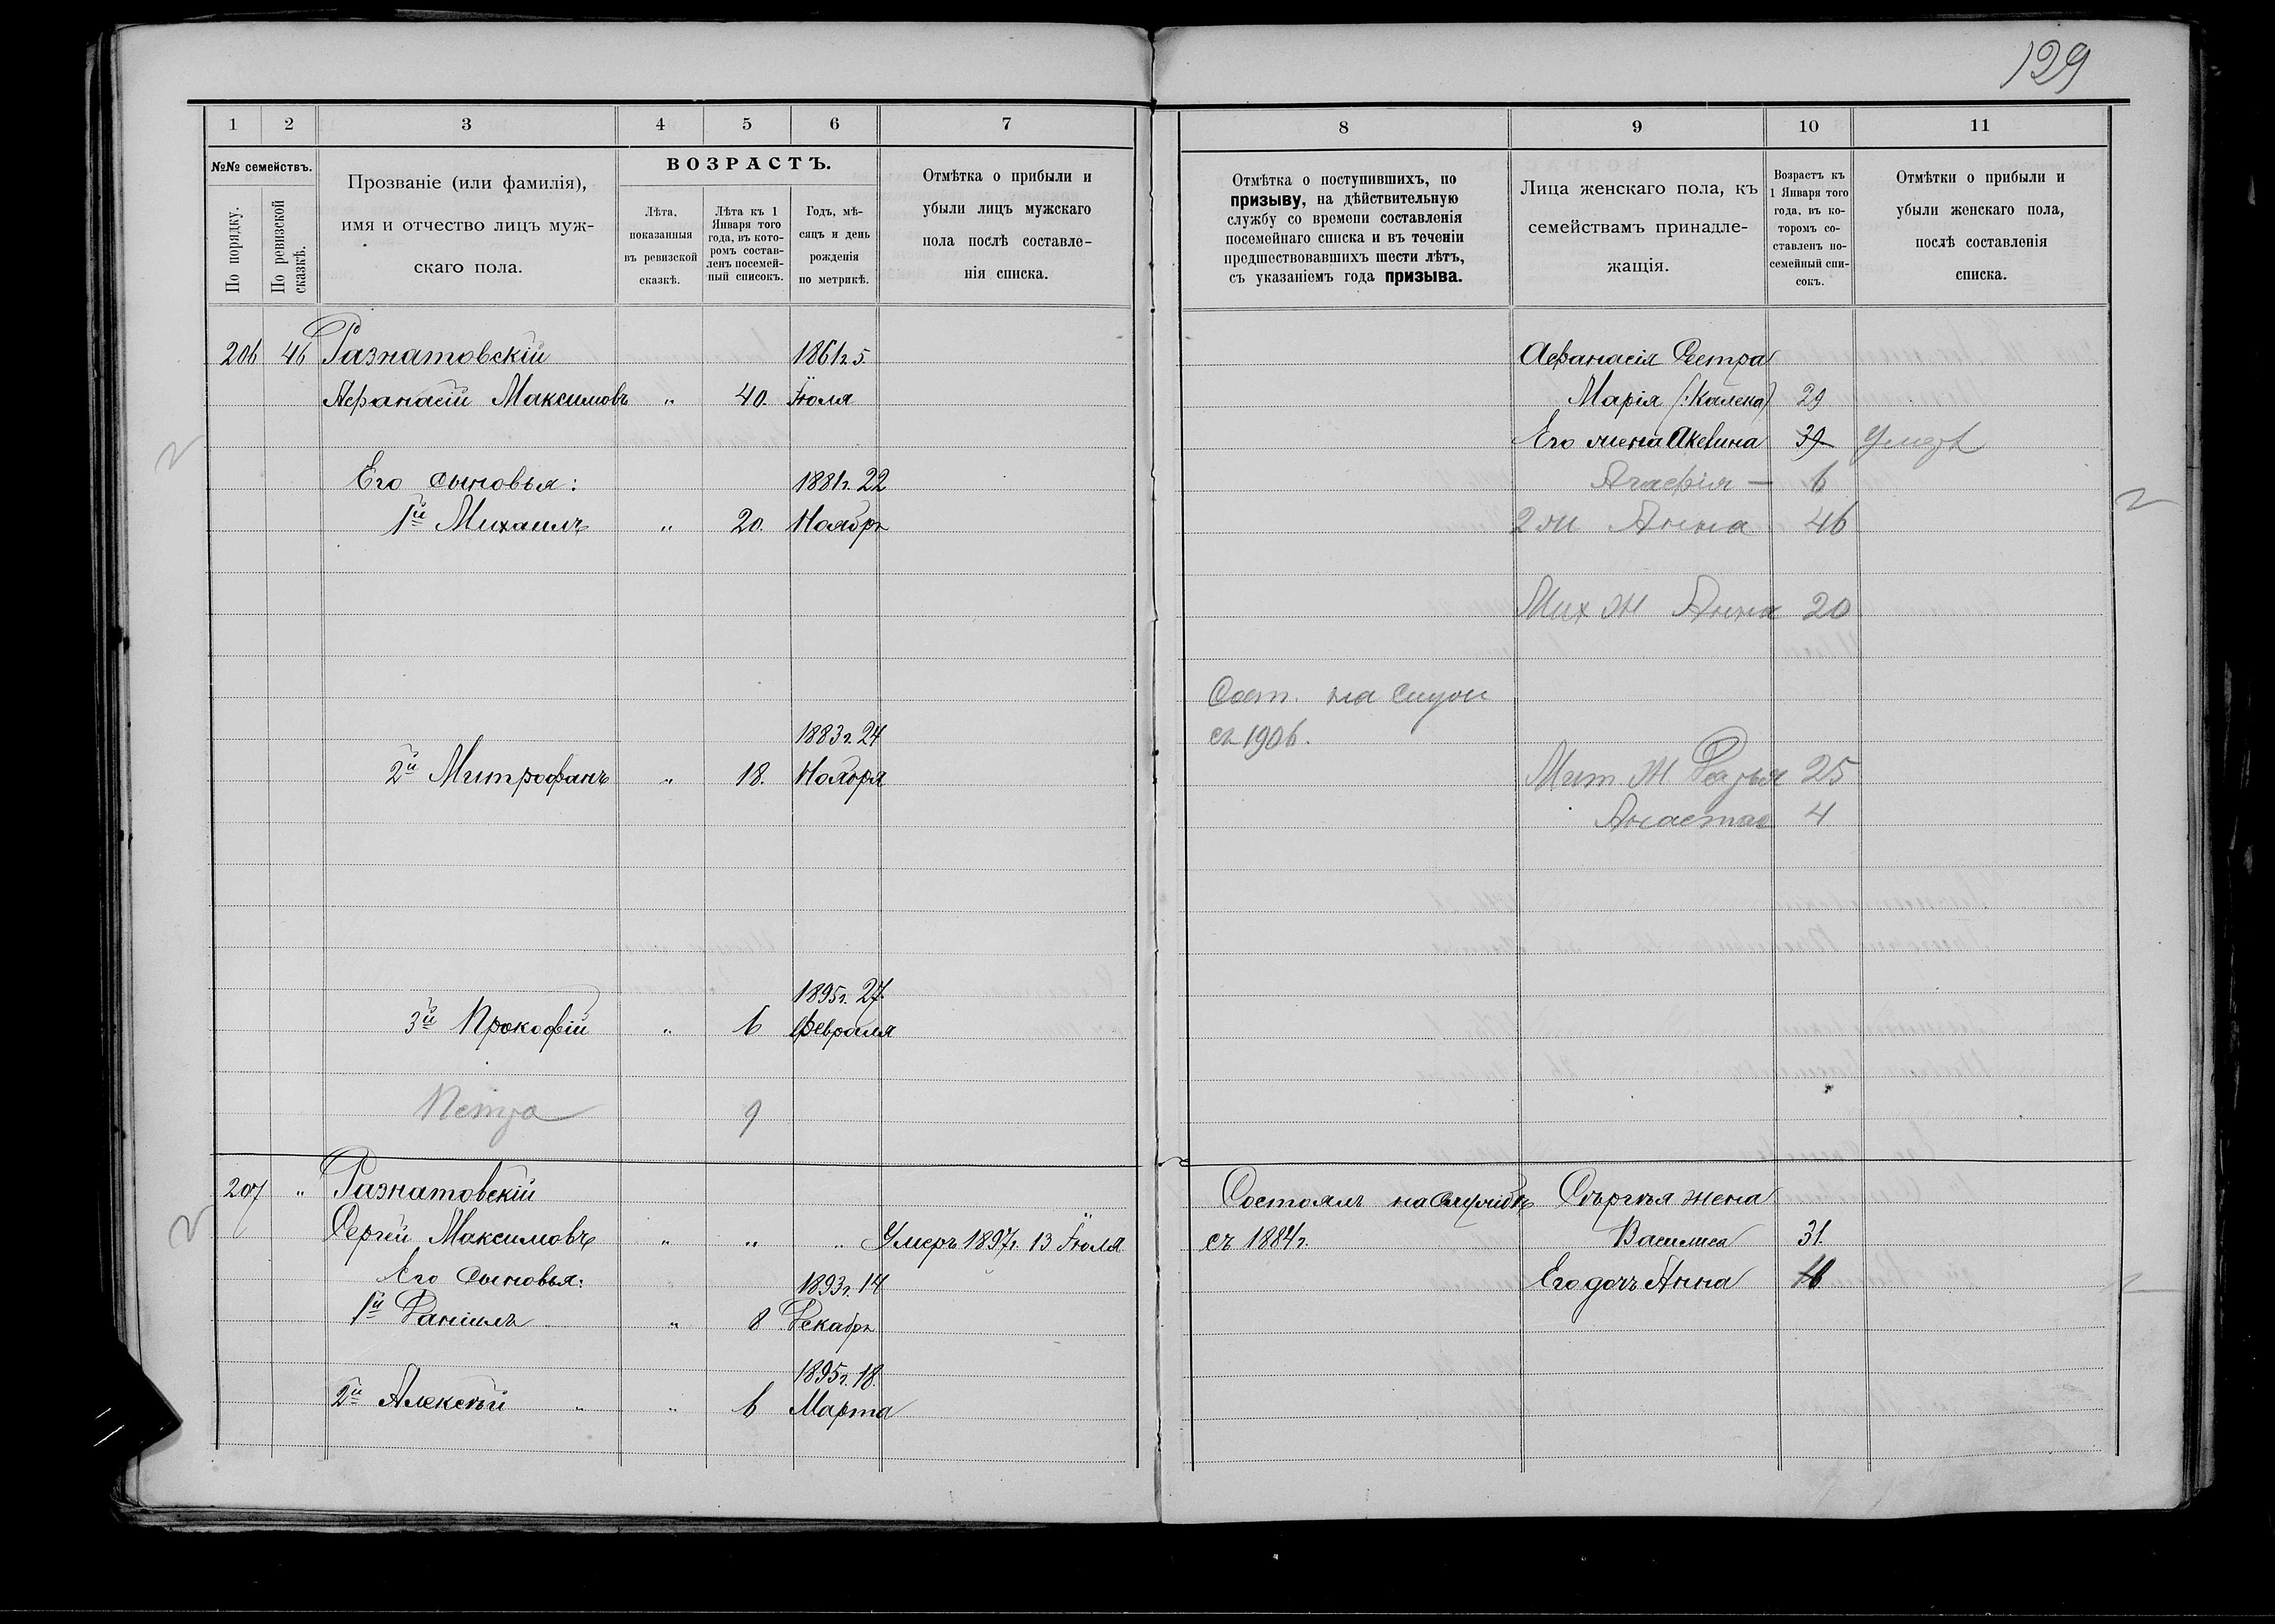 129
1 2 3 4 5 6 7
№№ семействъ.
По порядку.
По ревизской сказкѣ.
Прозваніе (или фамилія),
имя и отчество лицъ муж-
скаго пола.
ВОЗРАСТЪ.
Лѣта,
показанныя
въ ревизской
сказкѣ.
Лѣта къ 1
Января того
года, въ кото-
ромъ состав-
ленъ посемей-
ный списокъ.
Годъ, мѣ-
сяцъ и день
рожденія
по метрикѣ.
Отмѣтка о прибыли и
убыли лицъ мужскаго
пола послѣ составле-
нія списка.
206 46 Разнатовскій 1861г. 5
Афанасій Максимовъ „ 40. Іюля
Его сыновья: 1881г. 22
1й Михаилъ „ 20. Ноябрь
1883г. 24
2й Митрофанъ „ 18. Ноября
1895г. 27
3й Прокофій „ 6 февраля
Петра 9
207 „ Разнатовскій
Сергей Максимовъ „ „ „ Умеръ 1897г. 13 Іюля
Его сыновья: 1893г. 14
1й Даніилъ „ 8 Декабрь
1895г. 18.
2й Алексѣй „ „ 6 Марта
8 9 10 11
Отмѣтка о поступившихъ, по
призыву, на дѣйствительную
службу со времени составленія
посемейнаго списка и въ теченіи
предшествовавшихъ шести лѣтъ,
съ указаніемъ года призыва.
Лица женскаго пола, къ
семействамъ принадле-
жащія.
Возрастъ къ
1 Января того
года, въ ко-
торомъ со-
ставленъ по-
семейный спи-
сокъ.
Отмѣтки о прибыли и
убыли женскаго пола,
послѣ составленія
списка.
Афанасія Сестра
Марія (:Калека) 29
Его жена Акевина 39
Агафія — 6
2 ж Анна 46
Мих Ж Анна 20
Сост. на
съ 1906.
Мит. Ж Дарья 25
Анастас 4
Состоялъ на службѣ Сѣргѣя жена
съ 1884г. Василиса 31.
Его дочь Анна